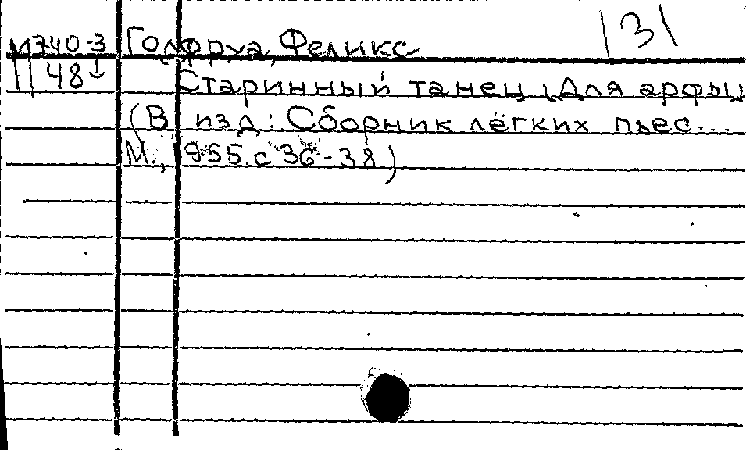 131
М740-3 Годфруа, Феликс
48 Старинный танец (Для арфы
(В изд: Сборник лёгких пьес...
М., 1955. с 36-38)